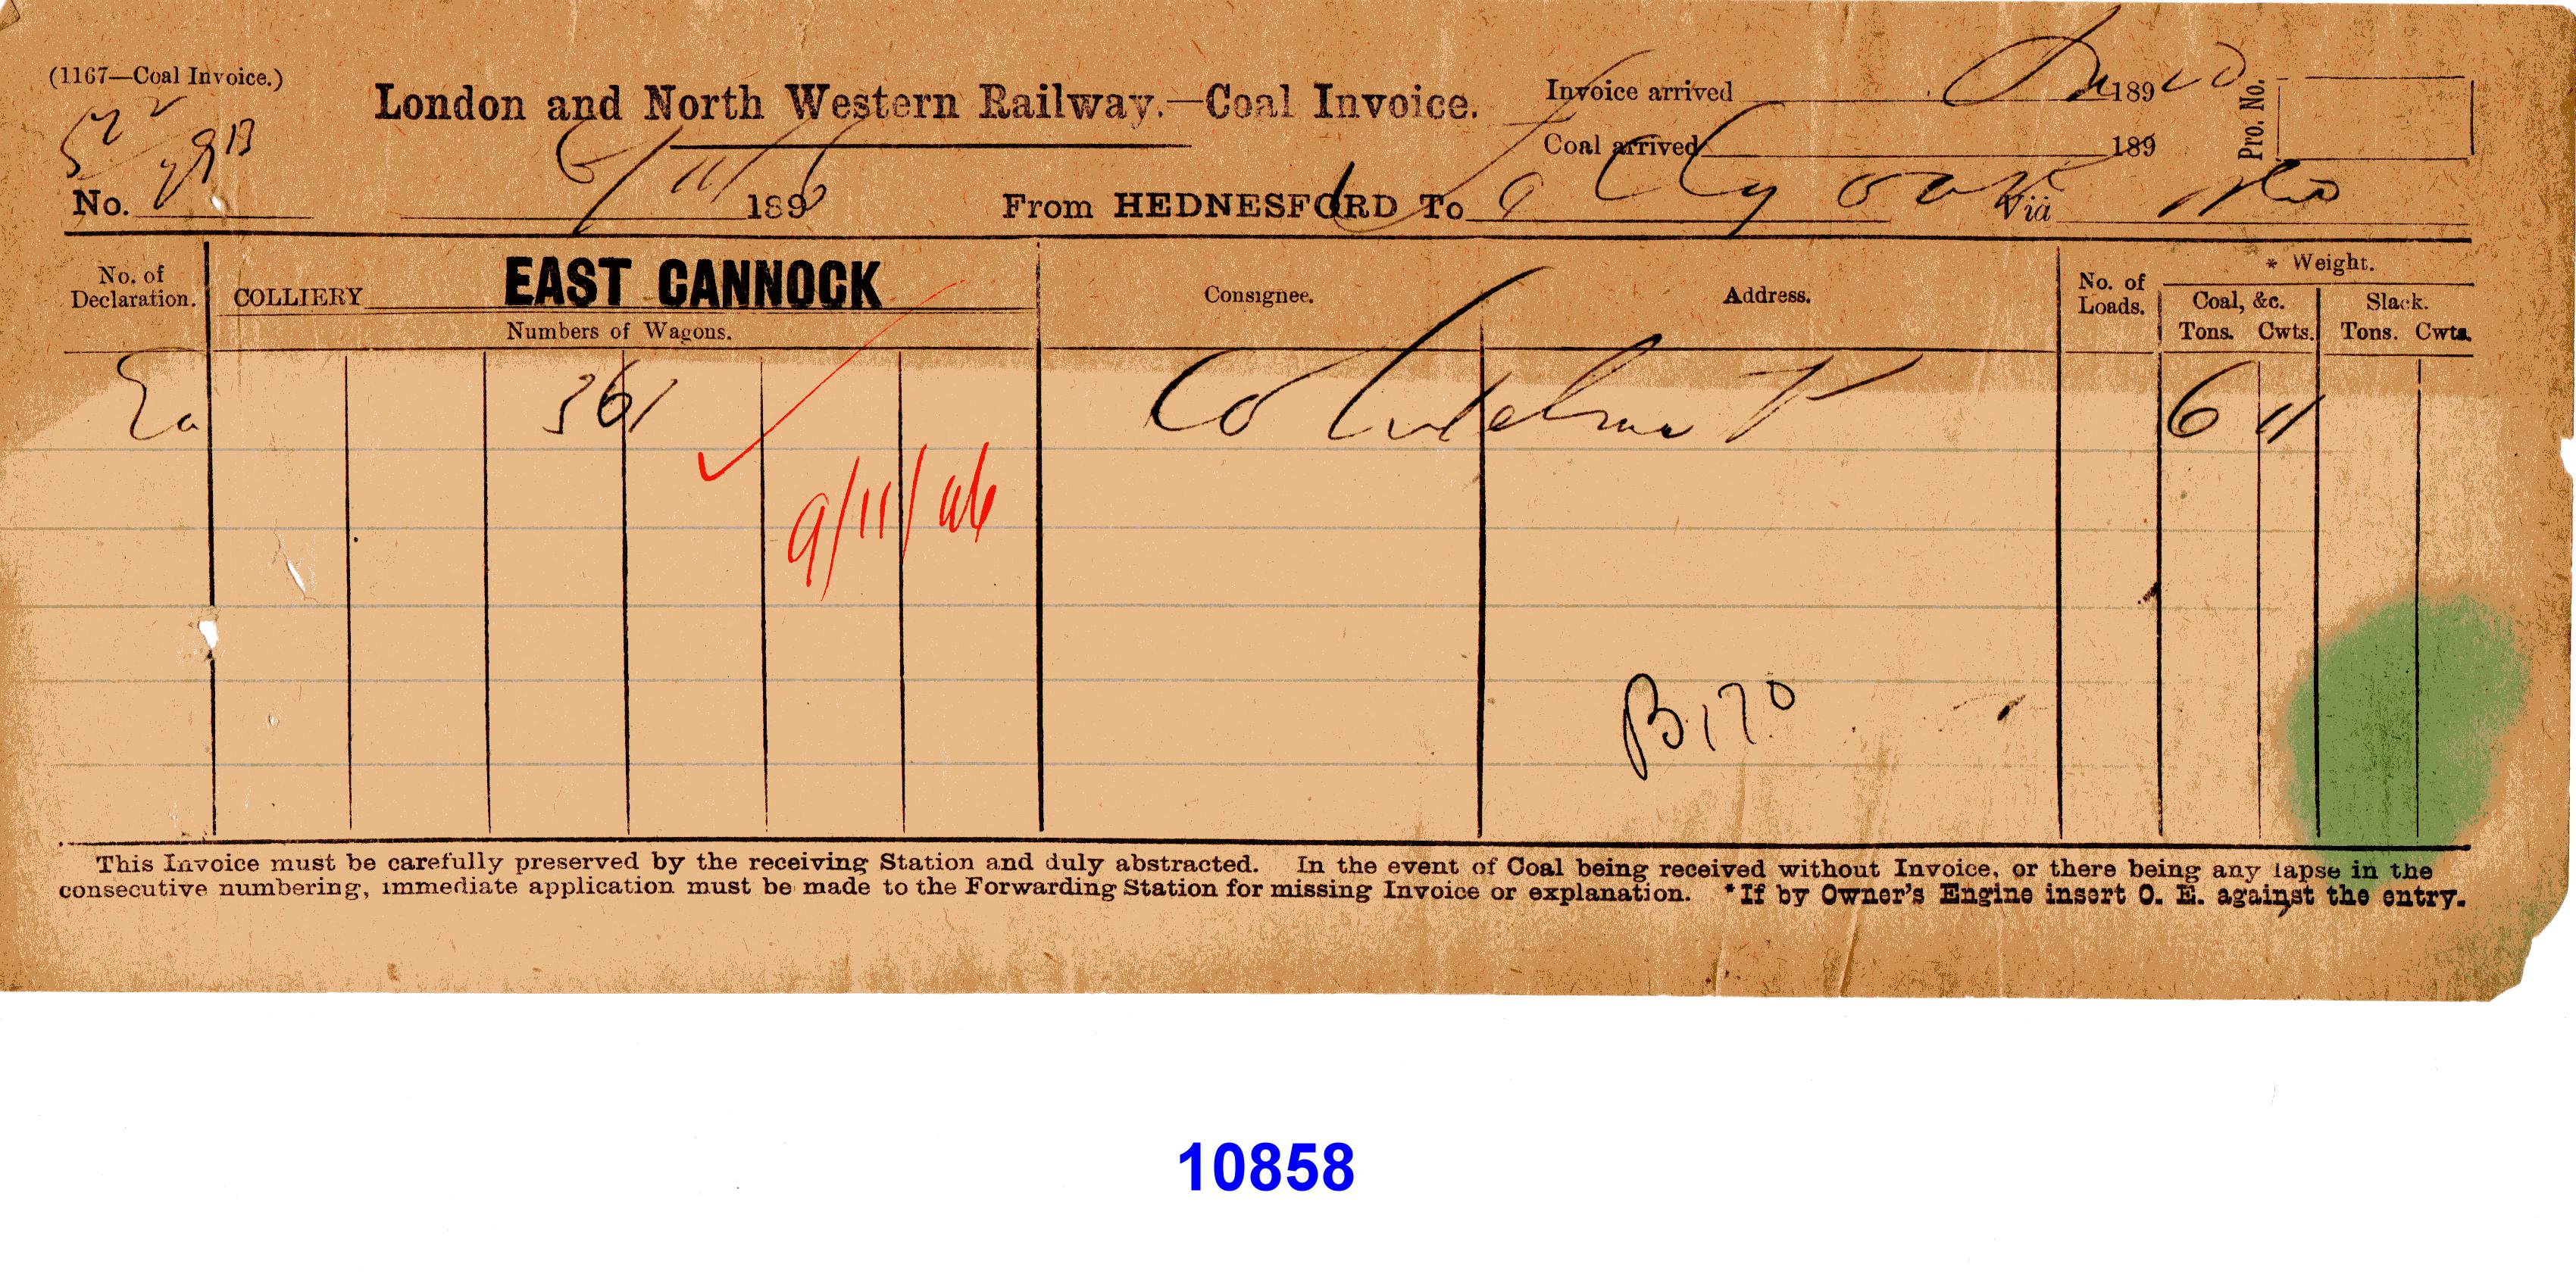 (1167—Coal Invoice.)
London and North Western Railway.—Coal Invoice.
Invoice arrived 189
Coal arrived 189
Pro. No.
No. 6/11/ 189 From HEDNESFORD To Selly oak Via
No. of Declaration.
COLLIERY EAST CANNOCK
Numbers of Wagons.
Consignee.
Address.
No. of Loads.
* Weight.
Coal, &c.
Slack.
Tons. Cwts.
Tons. Cwts.
361 6 11
9/11/96
B170
This Invoice must be carefully preserved by the receiving Station and duly abstracted. In the event of Coal being received without Invoice, or there being any lapse in the
consecutive numbering, immediate application must be made to the Forwarding Station for missing Invoice or explanation. *If by Owner's Engine insert O. E. against the entry.
10858